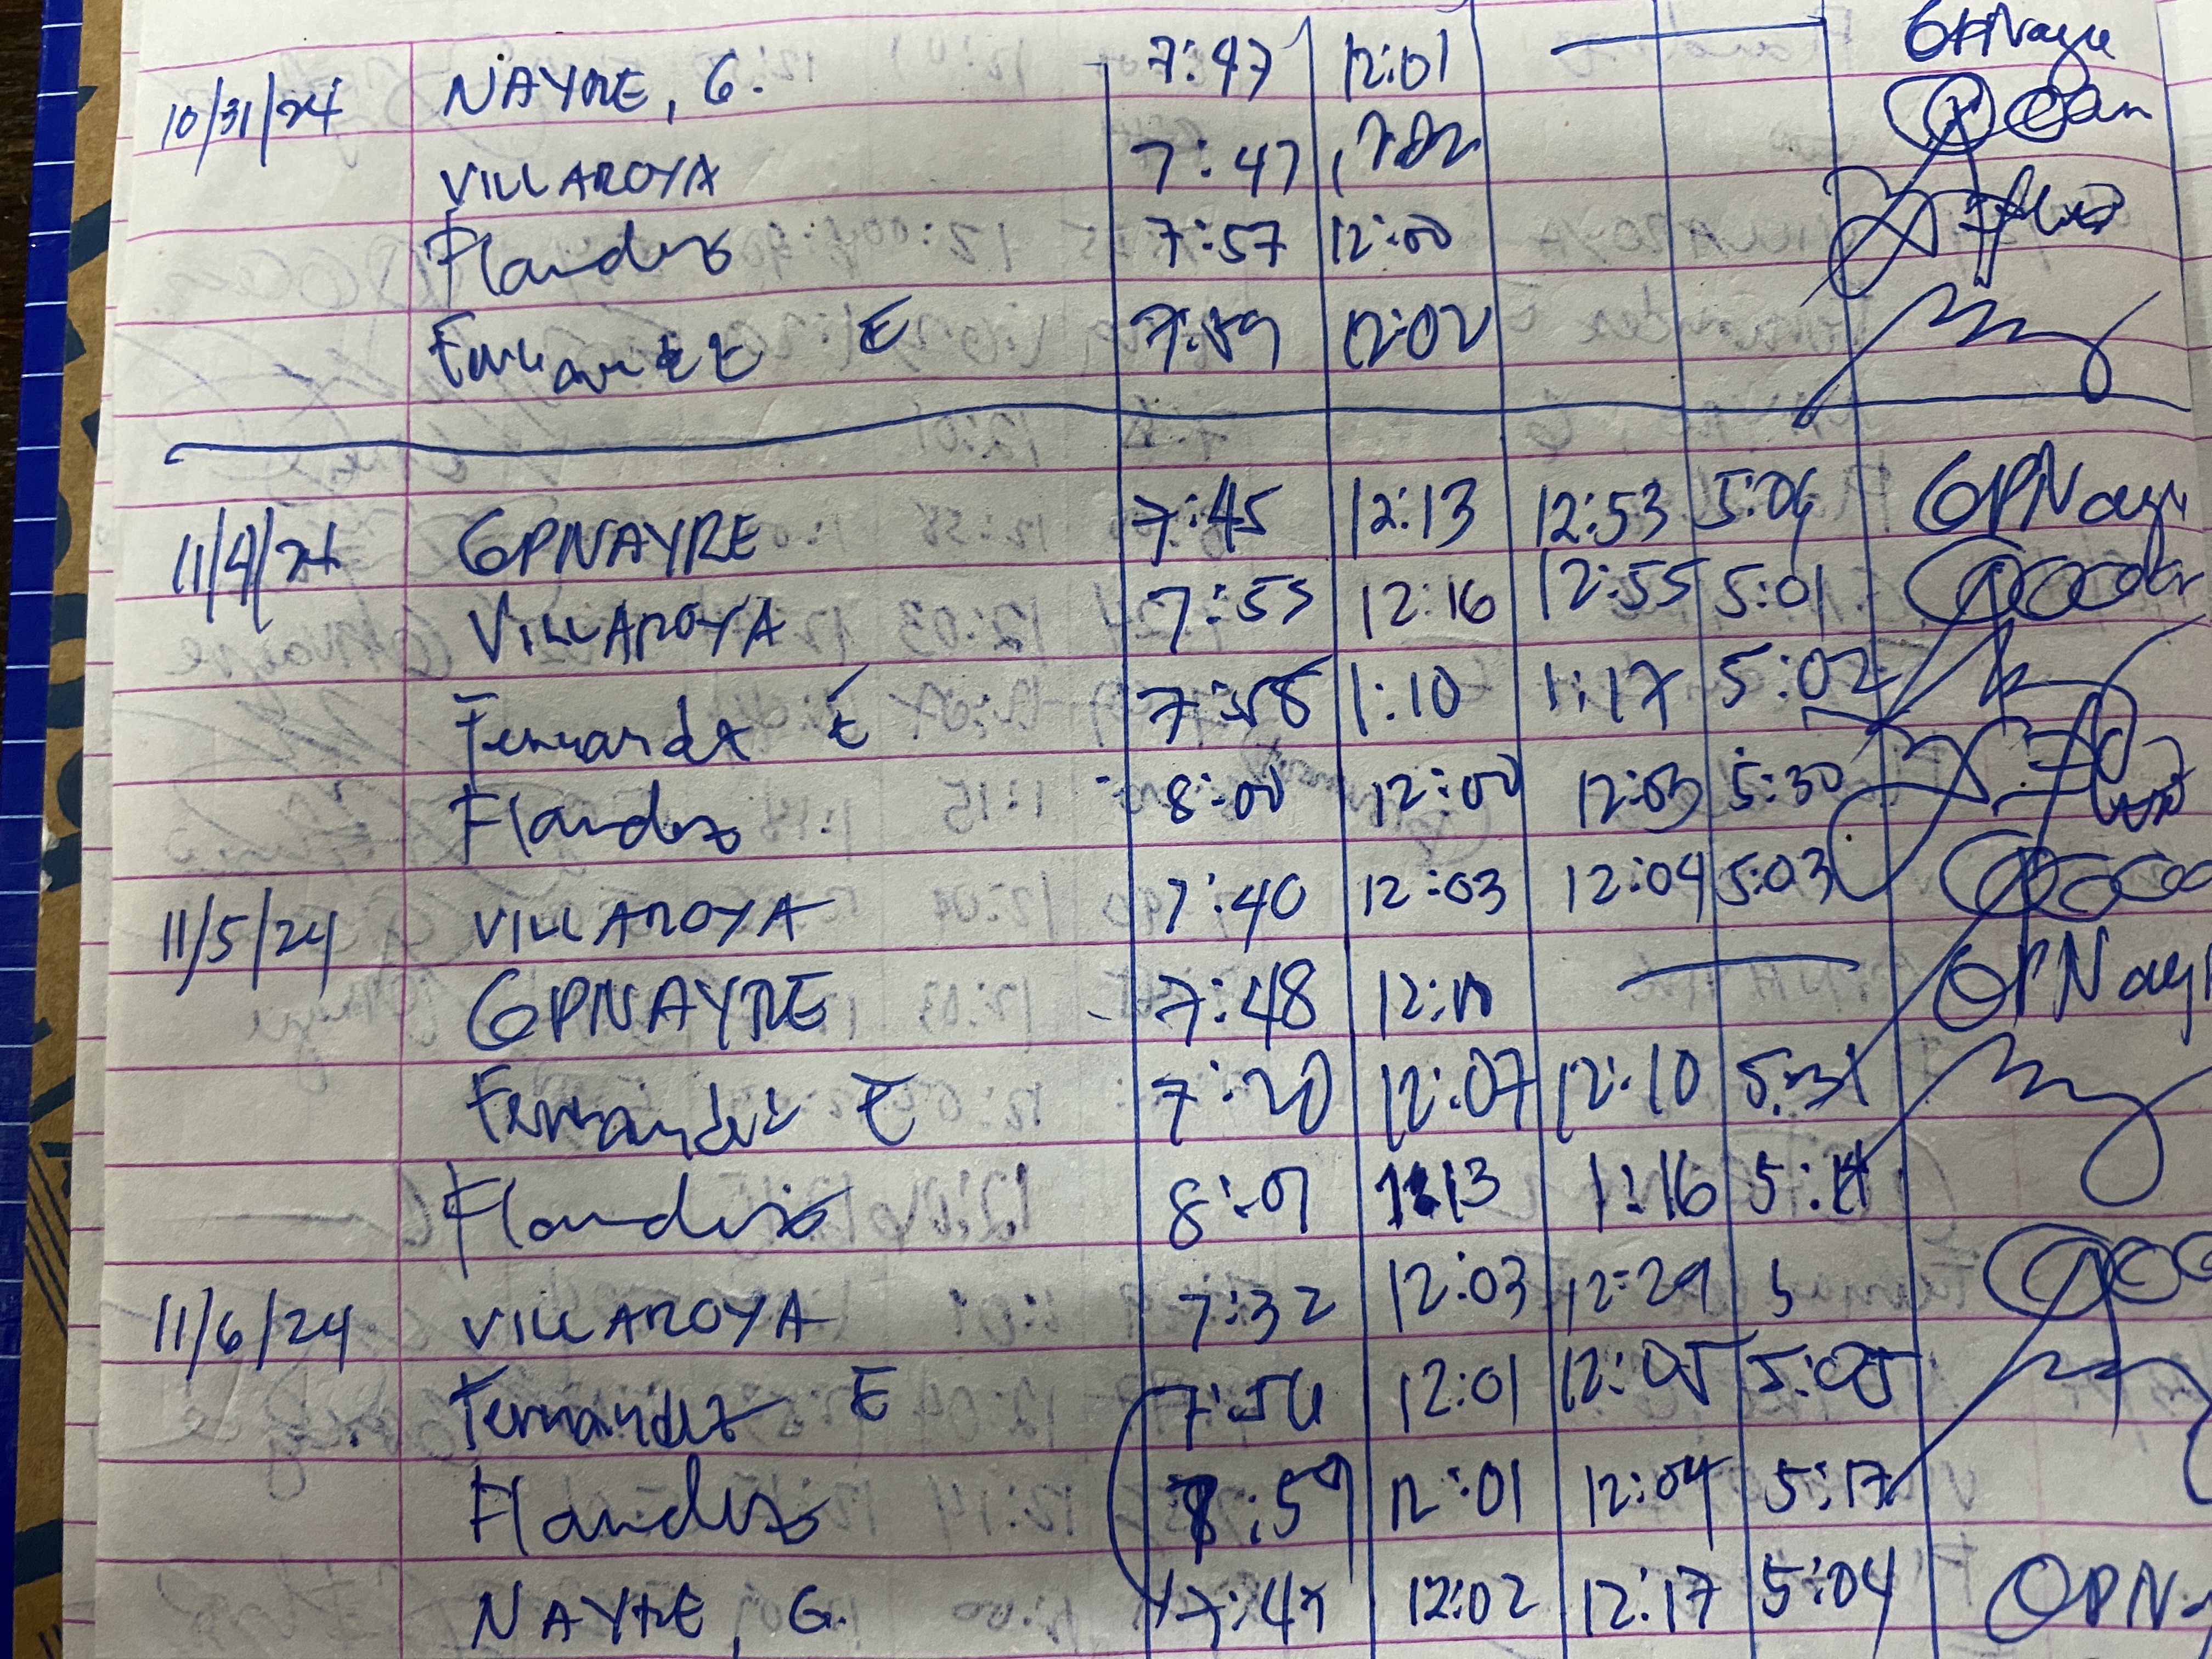 10/31/24 NAYRE, G. 7:47 12:01 — GPNayre
VILLAROYA 7:47
Flandez 7:57 12:00
Fernandez E 7:59 12:02
11/4/24 GPNAYRE 7:45 12:13 12:53 5:04 GPNayre
VILLAROYA 7:55 12:16 12:55 5:01
Fernandez E 7:58 1:10 1:17 5:02
Flandez 8:00 12:00 12:03 5:30
11/5/24 VILLAROYA 7:40 12:03 12:04 5:03
GPNAYRE 7:48 — GPNay
Fernandez E 7:20 12:07 12:10 5:31
Flandez 8:01 1:13 1:16 5:14
11/6/24 VILLAROYA 7:32 12:03 12:29 5
Fernandez E 7:56 12:01 12:05 5:05
Flandez :59 12:01 12:04 5:17
NAYRE, G. 7:47 12:02 12:17 5:04 GPN